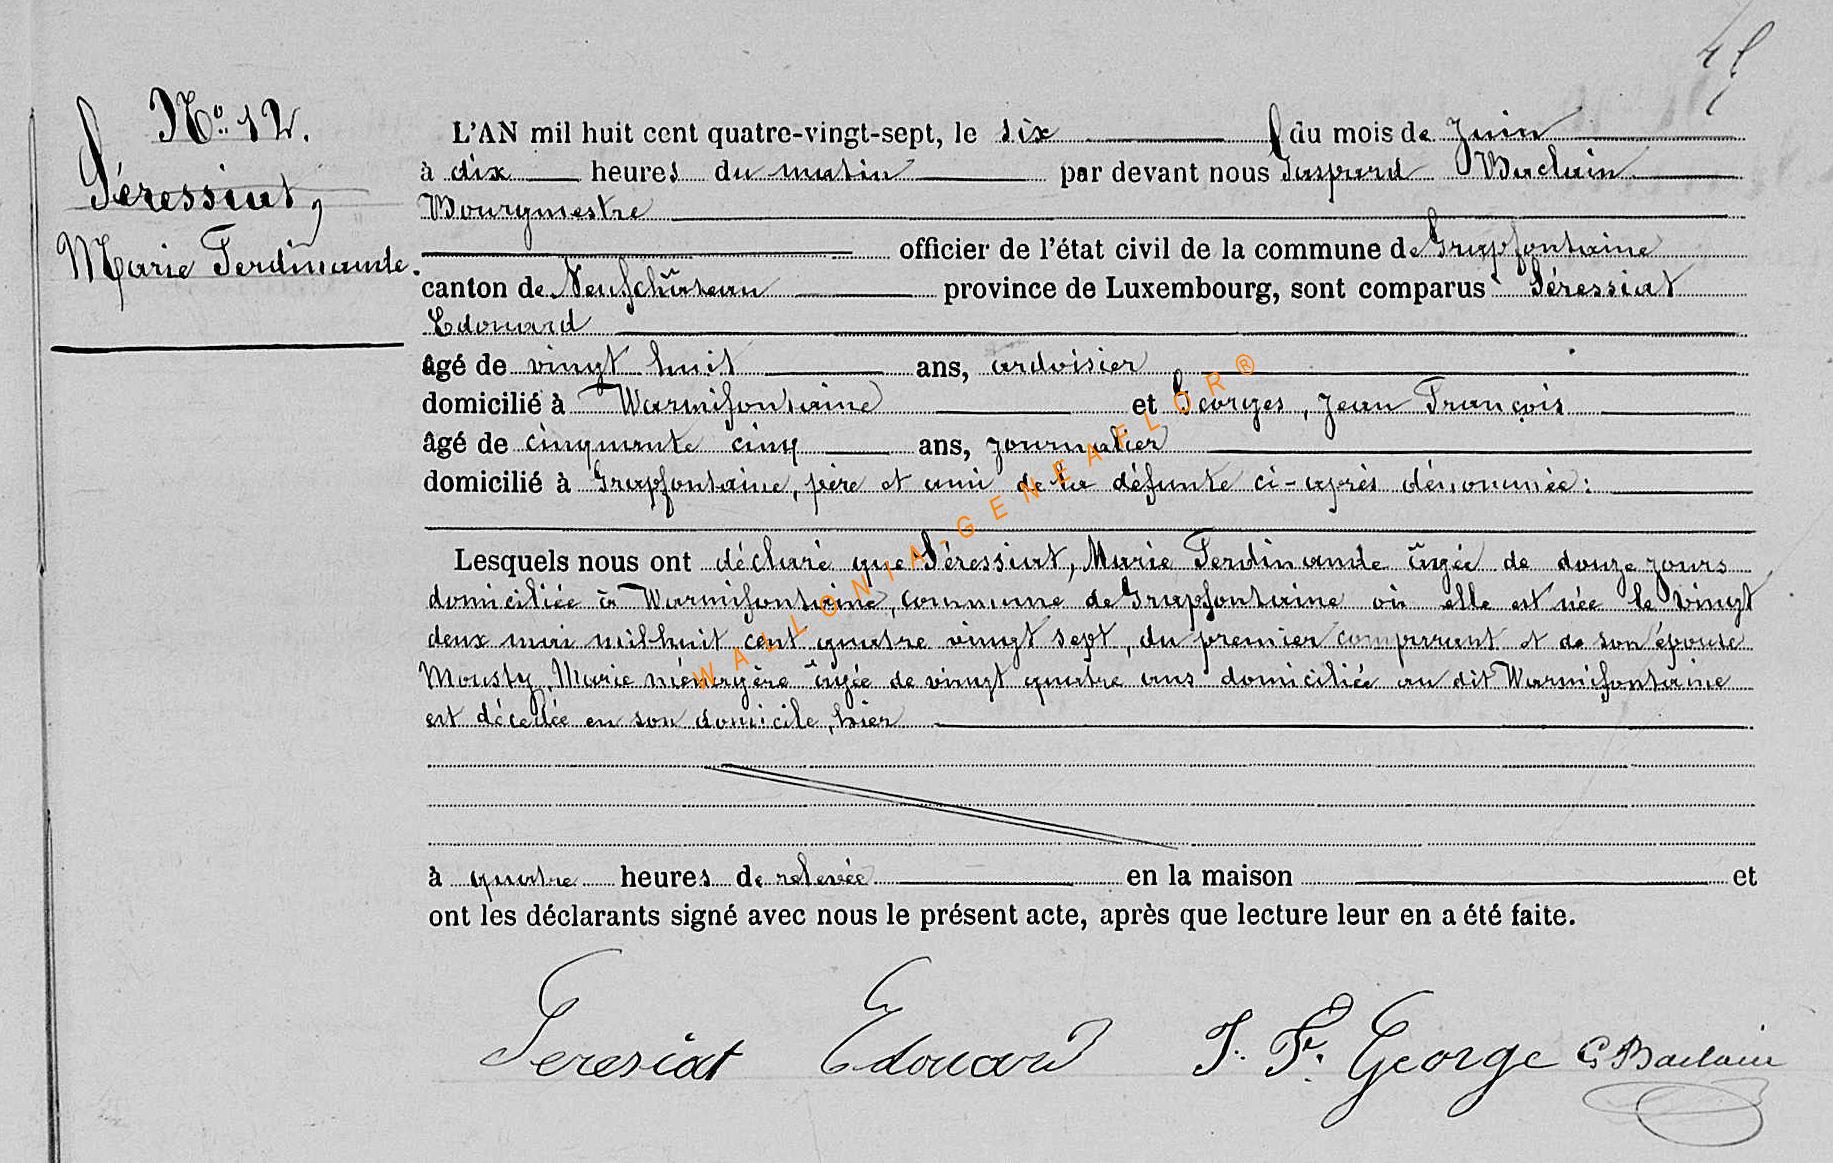 45
N° 12.
Séressiat,
Marie Ferdinande.
L'AN mil huit cent quatre-vingt-sept, le six du mois de Juin
à dix heures du matin par devant nous Gaspard Baclain
Bourgmestre
officier de l'état civil de la commune de Grapfontaine
canton de Neufchâteau province de Luxembourg, sont comparus Séressiat
Edouard
âgé de vingt huit ans, ardoisier
domicilié à Warmifontaine et Georges, Jean François
âgé de cinquante cinq ans, journalier
domicilié à Grapfontaine, père et ami de la défunte ci-après dénommée:
Lesquels nous ont déclaré que Séressiat, Marie Ferdinande âgée de douze jours
domiciliée à Warmifontaine, commune de Grapfontaine où elle est née le vingt
deux mai mil huit cent quatre vingt sept, du premier comparant et de son épouse
Mousty, Marie ménagère âgée de vingt quatre ans domiciliée au dit Warmifontaine
est décédée en son domicile, hier
à quatre heures de relevée en la maison et
ont les déclarants signé avec nous le présent acte, après que lecture leur en a été faite.
Seresiat Edouard J. F. George G Baclain
WALLONIA-GENEAFLOR®